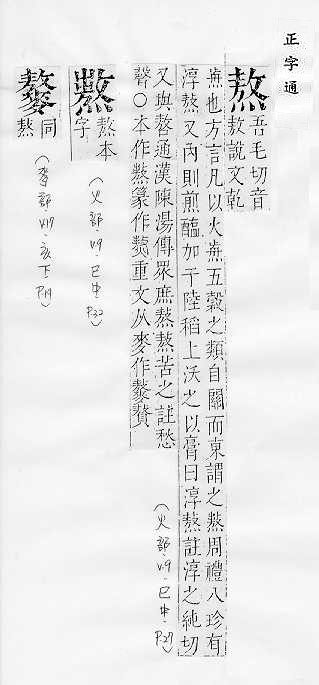 正字通
熬
吾毛切音
敖說文乾
𤎅也方言凡以火𤎅五穀之類自關而東謂之熬周禮八珍有
淳熬又內則煎醢加于陸稻上沃之以膏曰淳熬註淳之純切
又與謷通漢陳湯傳眾庶熬熬苦之註愁
聲〇本作𤏺篆作𤏺重文从麥作䵅贅
(火部·V.9·巳中·P.27)
熬本
字
(火部·V.9·巳中·P.32)
䵅
同
熬
(麥部·V.17·亥下·P.19)